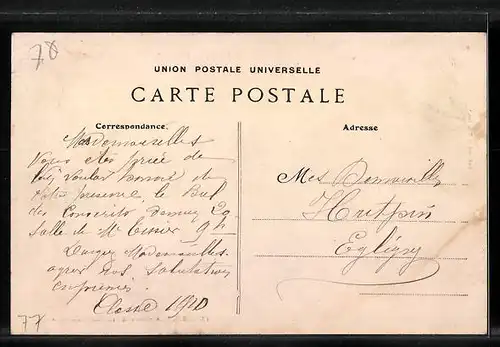 78
UNION POSTALE UNIVERSELLE
CARTE POSTALE
Correspondance
Mesdemoiselles
Vous êtes priée de
bien Vouloir honoré de
Votre presence le Bal
des Conscrits 29
Salle de Mr 9 h
Daigez Mesdemoiselles
agréer nos Salutations
empressées
Classe 1910
77
Adresse
Mes Demoiselles
Égligny